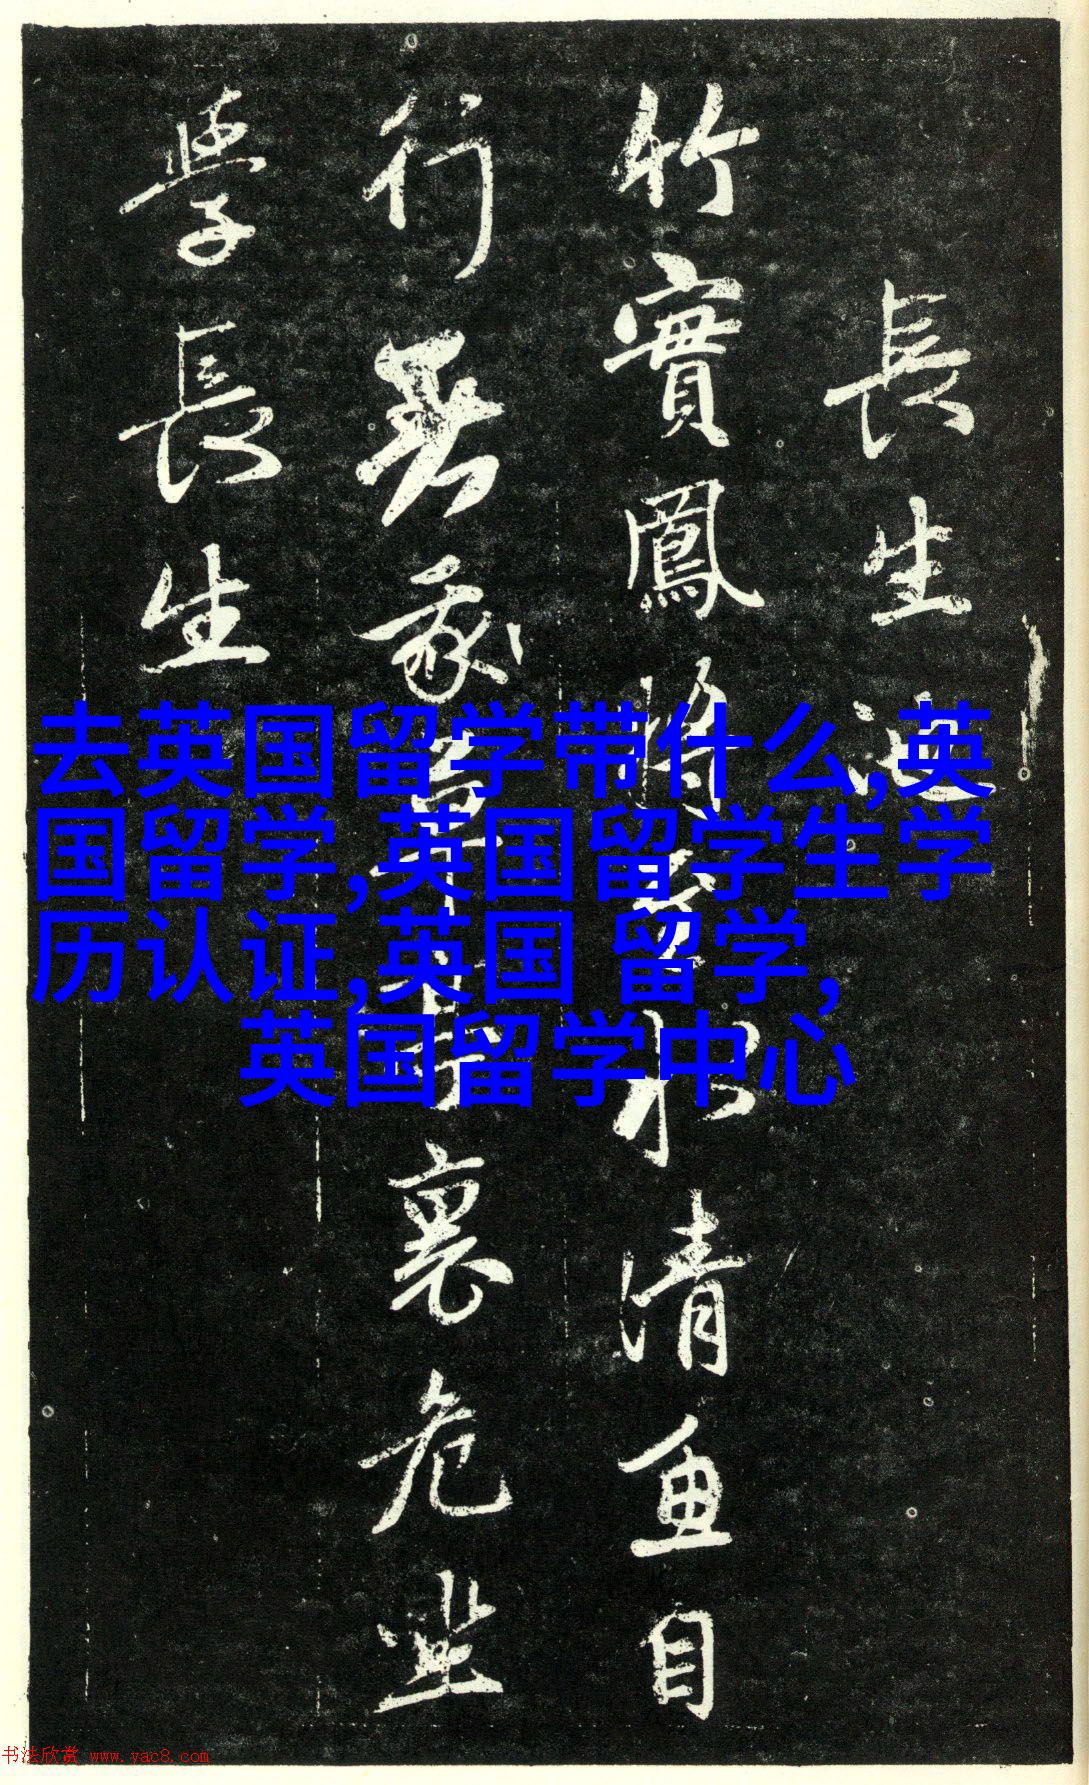 長生
竹實鳳將水清魚自
行裏危坐
學長生
去英国留学带什么,英
国留学,英国留学生学
历认证,英国 留学,
英国留学中心
书法欣赏 www.yac8.com